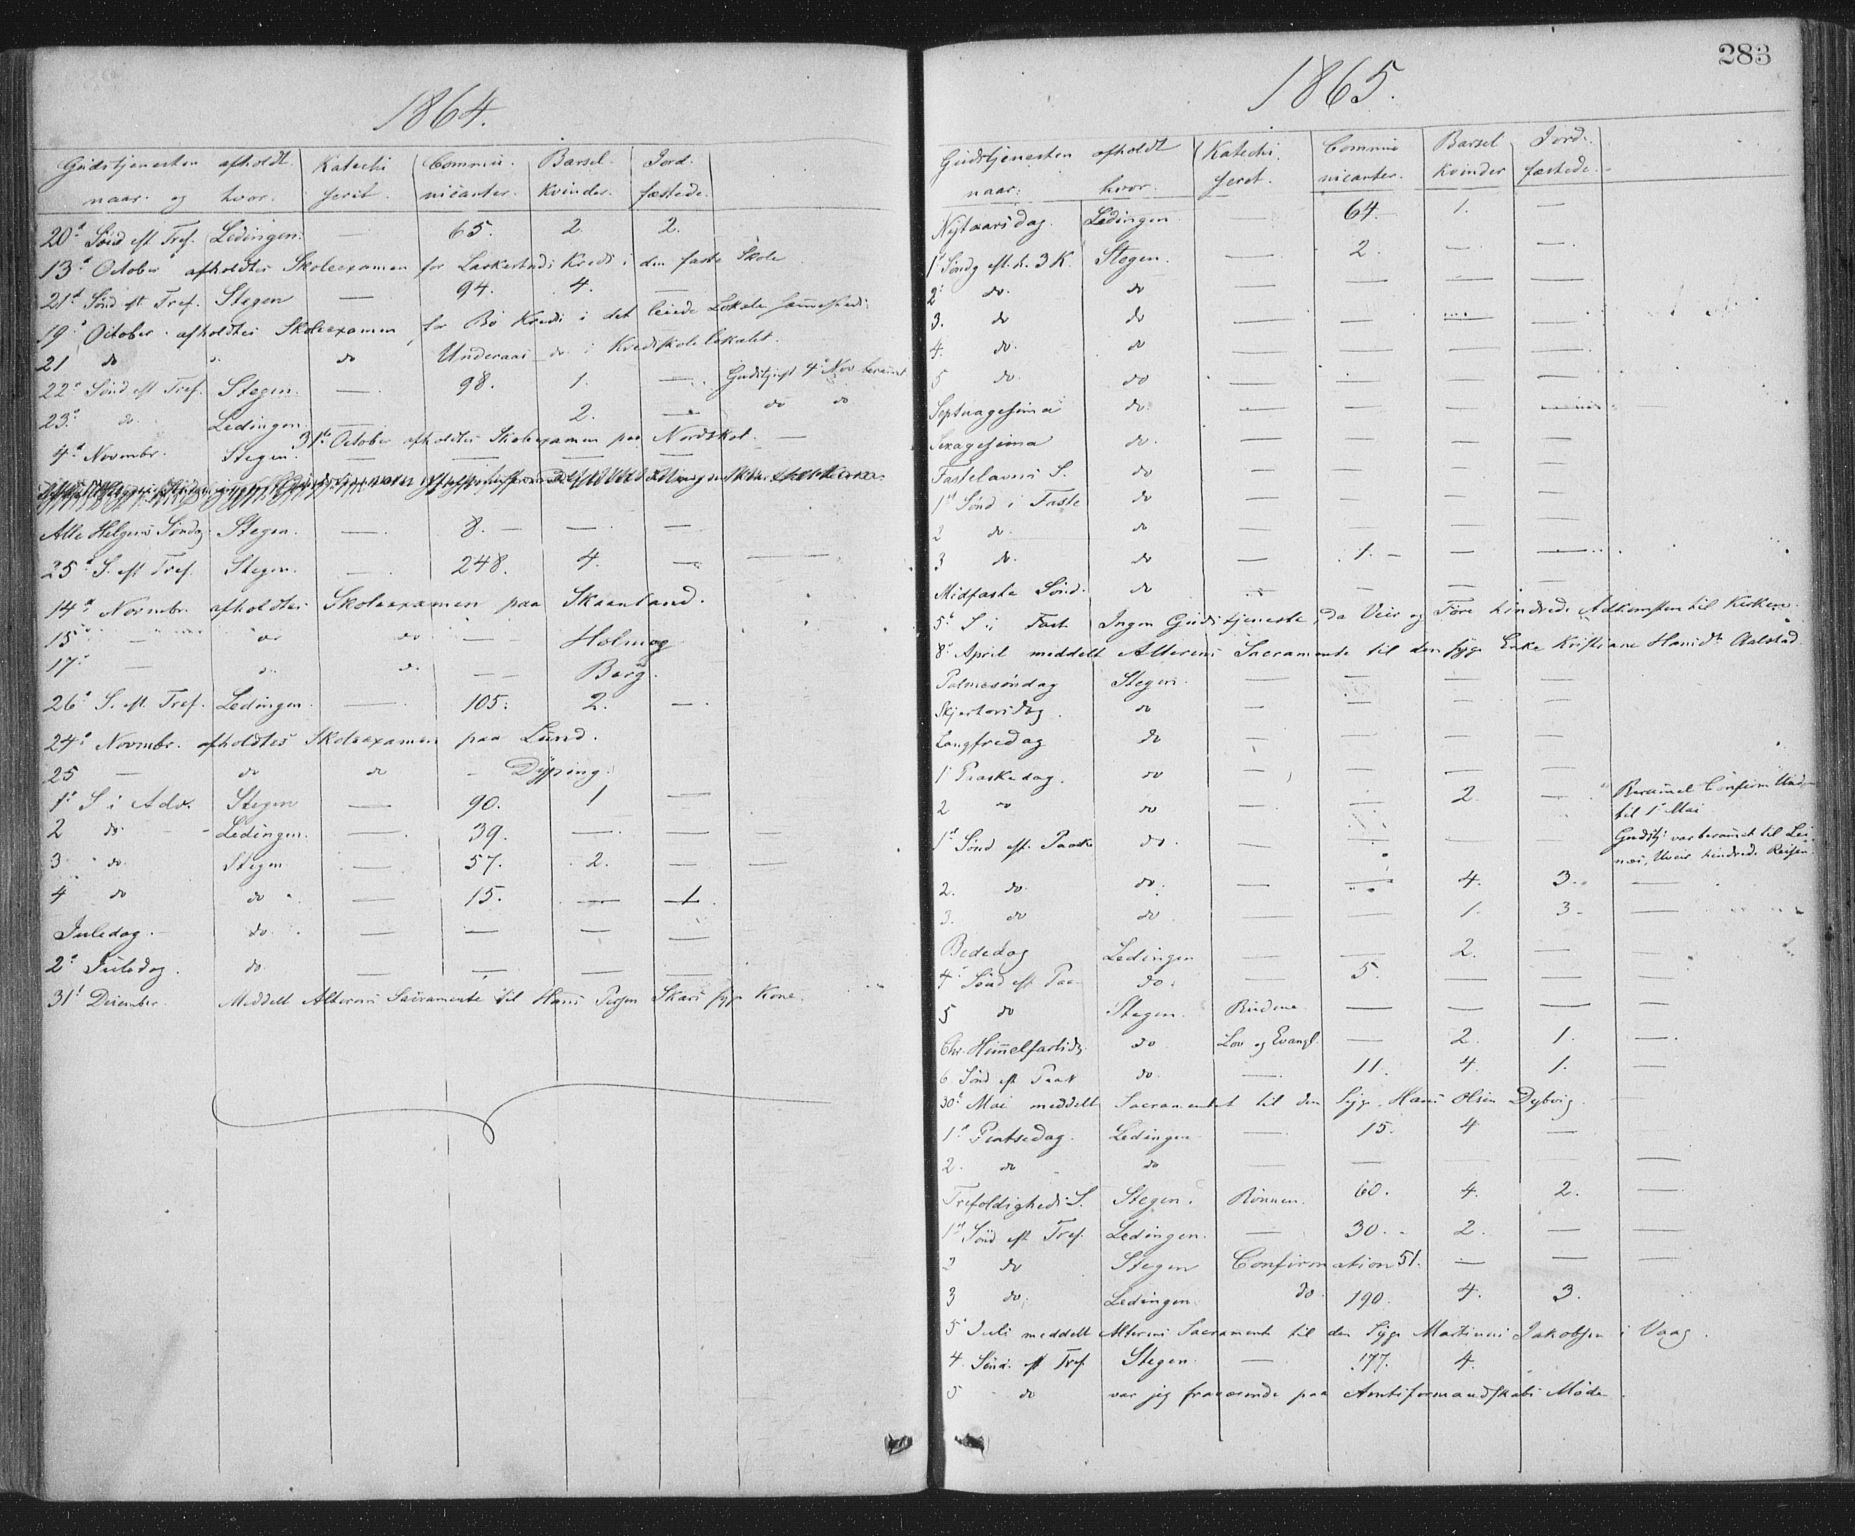 1864.
Gudstjenesten afholdt Katechi Commu- Barsel- Jord-
naar og hvor. seret. nicanter. kvinder. fæstede.
20d Sönd eft Tref. Ledingen. — 65. 2 2.
13d October afholdtes Skoleexamen for Laskestads Kreds i den faste Skole
21d Sönd eft Tref. Stegen — 94. 4. —
19d October afholdtes Skoleexamen for Bö Kreds i det leiede Lokale sammesteds.
21 do do Underaas do i Kredsskolelokalet.
22d Sönd eft Tref. Stegen. — 98. 1. — Gudstj. 4d Nov berammet
23d do. Ledingen. — 2. — do do
31te October afholdtes Skoleexamen paa Nordskot. —
4d Novembr. Stegen. — — — —
Alle Helgens Söndag Stegen. — 8. — — —
25d S. eft Tref. Stegen. — 248. 4. — —
14d Novmbr. afholdtes Skoleexamen paa Skaanland.
15d — do do — Holmog
17d — do do — Borg.
26d S. eft Tref. Ledingen. — 105. 2. —
24d Novmbr. afholdtes Skoleexamen paa Lund.
25 — do do — Dyping.
1d S i Adv. Stegen — 90. 1 —
2 do. Ledingen. — 39. — — —
3 do Stegen — 57. 2. — —
4 do do — 15. — 1.
Juledag. do. — — — —
2d Juledag. do. — — — —
31d December. Meddelt Alterens Sacramente til Hans Persen Skars syge Kone.
283
1865.
Gudstjenesten afholdt Katechi- Commu Barsel Jord-
naar. hvor. seret. nicanter. kvinder fæstede.
Nytaarsdag. Ledingen. — 64. 1. —
1d Söndg eft. h. 3 K. Stegen. — 2. — —
2d do. do — — — —
3. do do — — — —
4. do. do — — — —
5 do. do — — — —
Septuagesima do. — — — —
Sexagesima do. — — — —
Fastelavns S. do — — — —
1d Sönd i Faste do — — — —
2 do. do — — — —
3 do. do — 1. — — —
Midfaste Sönd. do — — — —
5d S. i Fast. Ingen Gudstjeneste, da Veir og Före hindrede Adkomsten til Kirken.
8d April meddelt Alterens Sacramente til den syge Enke Kristiane Hansdt Aalstad
Palmesöndag Stegen. — — — —
Skjertorsdag. do — — — —
Langfredag do — — — —
1 Paaskedag. do — — — —
2 do do — — 2. — Berammet Confirm Und.
til 1d Mai
1d Sönd eft. Paaske do. — — — — Gudstj. var berammet til Lei-
nes, Uveir hindrede Reisen
2. do. do. — — 4. 3. —
3. do do — — 1. 3. —
Bededag Ledingen — — 2. —
4d Sönd eft Paa do. — 5. — —
5 do Stegen. Budene — — — —
Chr. Himmelfartsdg. do Lov og Evangl. — 2. 1. —
6. Sönd eft Paask do. — 11. 4. 1. —
30d Mai meddelt Sacramentet til den Syge Hans Olsen Dybvig.
1d Pintsedag. Ledingen — 15. 4 —
2. do do — — — — —
Trefoldigheds S. Stegen. Bönnen. 60. 4. 2. —
1d Sönd eft Tref. Ledingen. — 30. 2. — —
2 do Stegen Confirmation 51. — — —
3 do. Ledingen. do 190. 4. 3.
5d Juli meddelt Alterens Sacrament til den Syge Martinus Jakobsen i Vaag.
4. Sönd. eft Tref Stegen. — 177. 4.
5 do var jeg fraværende paa Amtsformandskabs Möde.